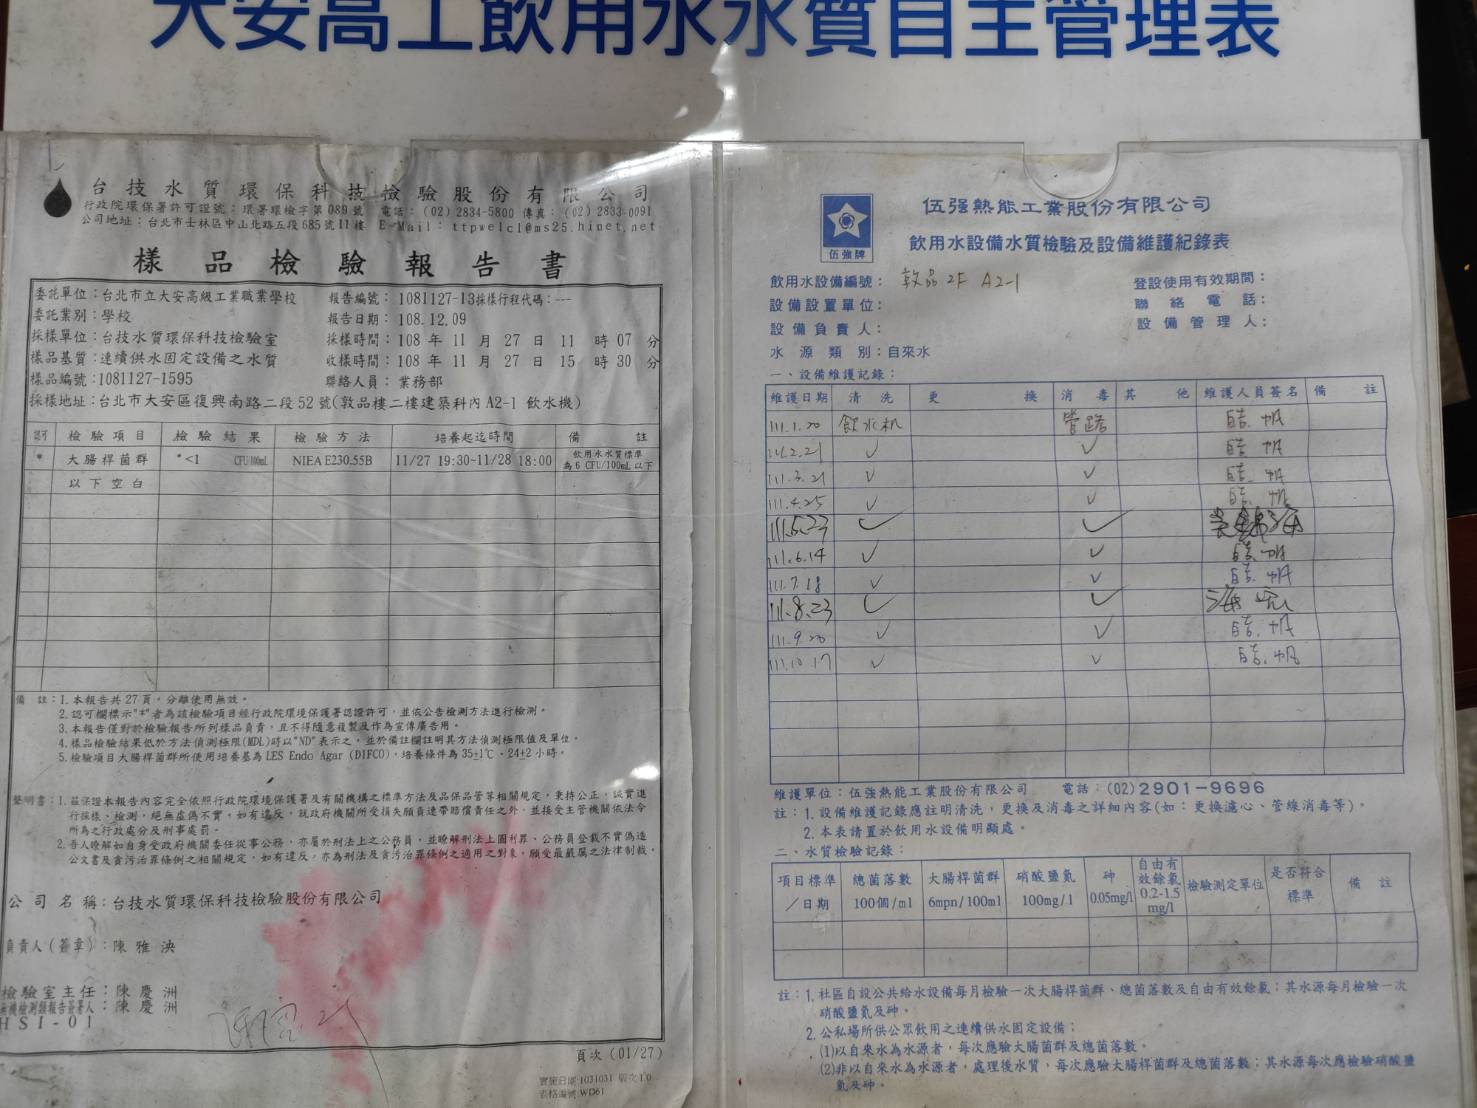 大安高工飲用水水質自主管理表
台技水質環保科技檢驗股份有限公司
行政院環保署許可證號：環署環檢字第089號 電話：(02) 2834-5800 傳真：(02) 2833-0091
公司地址：台北市士林區中山北路五段685號11樓 E-Mail：ttpwelcl@ms25.hinet.net
樣品檢驗報告書
委託單位：台北市立大安高級工業職業學校 報告編號：1081127-13採樣行程代碼：---
委託業別：學校 報告日期：108.12.09
採樣單位：台技水質環保科技檢驗室 採樣時間：108 年 11 月 27 日 11 時 07 分
樣品基質：連續供水固定設備之水質 收樣時間：108 年 11 月 27 日 15 時 30 分
樣品編號：1081127-1595 聯絡人員：業務部
採樣地址：台北市大安區復興南路二段52號(敦品樓二樓建築科內A2-1飲水機)
認可 檢驗項目 檢驗結果 檢驗方法 培養起迄時間 備註
* 大腸桿菌群 *<1 CFU/100mL NIEA E230.55B 11/27 19:30~11/28 18:00 飲用水水質標準為6 CFU/100mL以下
以下空白
備註：1.本報告共27頁，分離使用無效。
2.認可欄標示"*"者為該檢驗項目經行政院環境保護署認證許可，並依公告檢測方法進行檢測。
3.本報告僅對於檢驗報告所列樣品負責，且不得隨意複製及作為宣傳廣告用。
4.樣品檢驗結果低於方法偵測極限(MDL)時以"ND"表示之，並於備註欄註明其方法偵測極限值及單位。
5.檢驗項目大腸桿菌群所使用培養基為LES Endo Agar (DIFCO)，培養條件為35±1℃、24±2小時。
聲明書：1.茲保證本報告內容完全依照行政院環境保護署及有關機構之標準方法及品保品管等相關規定，秉持公正、誠實進
行採樣、檢測。絕無虛偽不實，如有違反，就政府機關所受損失願負連帶賠償責任之外，並接受主管機關依法令
所為之行政處分及刑事處罰。
2.吾人瞭解如自身受政府機關委任從事公務，亦屬於刑法上之公務員，並瞭解刑法上圖利罪、公務員登載不實偽造
公文書及貪污治罪條例之相關規定，如有違反，亦為刑法及貪污治罪條例之適用之對象，願受最嚴厲之法律制裁。
公司名稱：台技水質環保科技檢驗股份有限公司
負責人(簽章)：陳雅泱
檢驗室主任：陳慶洲
無機檢測類報告簽署人：陳慶洲
HSI-01
頁次 (01/27)
實施日期:1031031 版次1.0
表格編號:WD61
伍強牌
伍强熱能工業股份有限公司
飲用水設備水質檢驗及設備維護紀錄表
飲用水設備編號：敦品2F A2-1 登設使用有效期間：
設備設置單位： 聯絡電話：
設備負責人： 設備管理人：
水源類別：自來水
一、設備維護記錄：
維護日期 清洗 更換 消毒 其他 維護人員簽名 備註
111.1.20 飲水机 管路 皓帆
111.2.21 ✓ ✓ 皓帆
111.3.21 ✓ ✓ 皓帆
111.4.25 ✓ ✓ 皓帆
111.5.23 ✓ ✓
111.6.14 ✓ ✓ 皓帆
111.7.18 ✓ ✓ 皓帆
111.8.23 ✓ ✓
111.9.20 ✓ ✓ 皓帆
111.10.17 ✓ ✓ 皓帆
維護單位：伍強熱能工業股份有限公司 電話：(02)2901-9696
註：1.設備維護記錄應註明清洗，更換及消毒之詳細內容(如：更換濾心、管線消毒等)。
2.本表請置於飲用水設備明顯處。
二、水質檢驗記錄：
項目標準／日期 總菌落數100個/ml 大腸桿菌群6mpn/100ml 硝酸鹽氮100mg/l 砷0.05mg/l 自由有效餘氯0.2-1.5mg/l 檢驗測定單位 是否符合標準 備註
註：1.社區自設公共給水設備每月檢驗一次大腸桿菌群、總菌落數及自由有效餘氯；其水源每月檢驗一次
硝酸鹽氮及砷。
2.公私場所供公眾飲用之連續供水固定設備；
(1)以自來水為水源者，每次應驗大腸菌群及總菌落數。
(2)非以自來水為水源者，處理後水質，每次應驗大腸桿菌群及總菌落數；其水源每次應檢驗硝酸鹽
氮及砷。